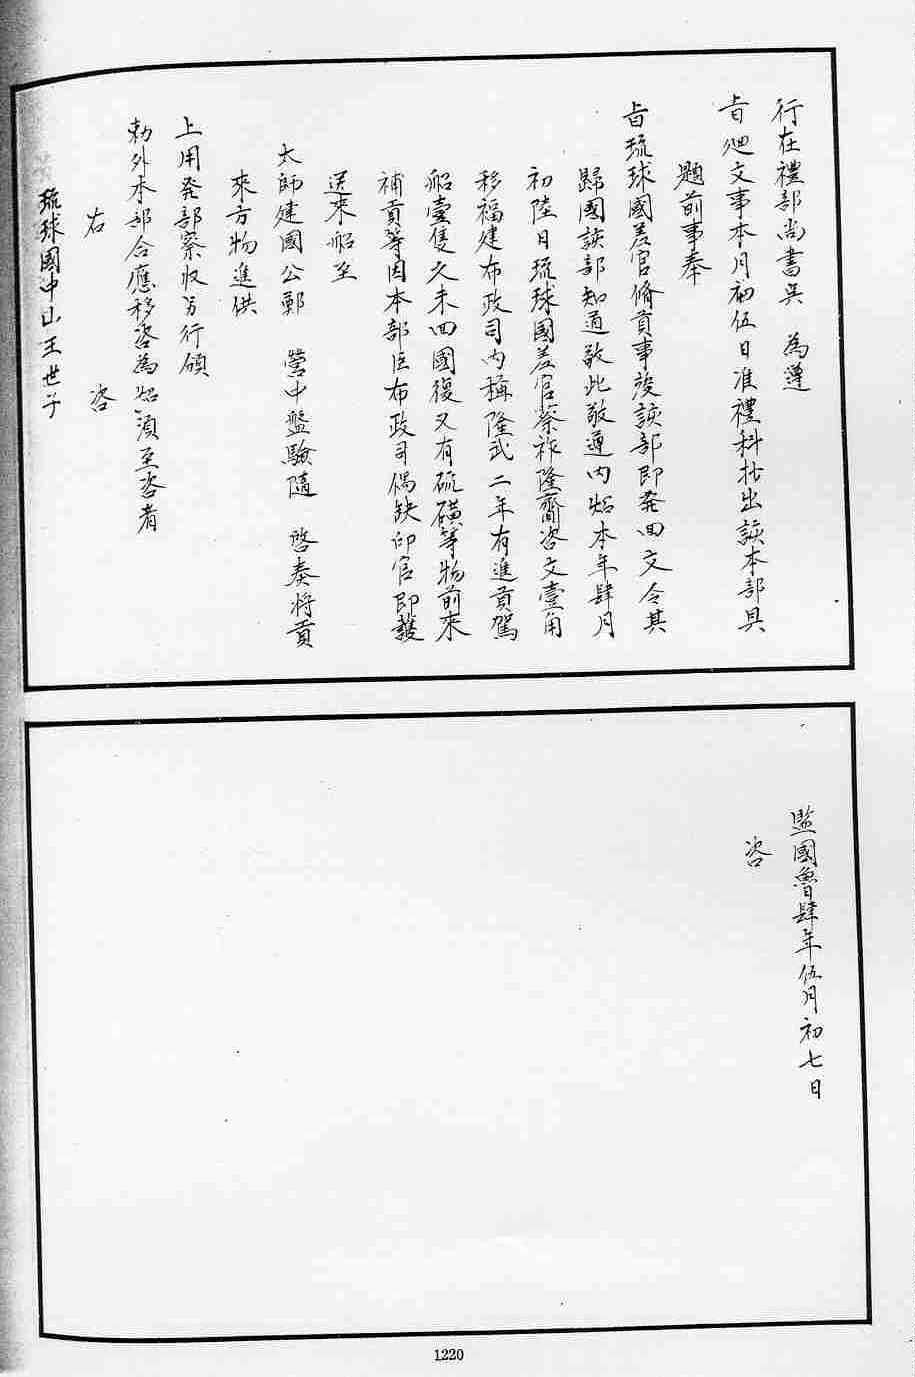 行在禮部尚書吳　為遵
旨迴文事本月初伍日准禮科抄出該本部具
題前事奉
旨琉球國差官脩貢事竣該部即発回文令其
歸國該部知道敬此敬遵内照本年肆月
初陸日琉球國差官蔡祚隆齎咨文壹角
移福建布政司内稱隆武二年有進貢駕
船壹隻久未回國復又有硫磺等物前來
補貢等因本部因布政司偶缺印官即護
送來船至
太師建國公鄭　營中盤驗隨　啓奏將貢
來方物進供
上用発部察收另行頒
勅外本部合應移咨為照須至咨者
右　咨
琉球國中山王世子
監國魯肆年伍月初七日
咨
1220